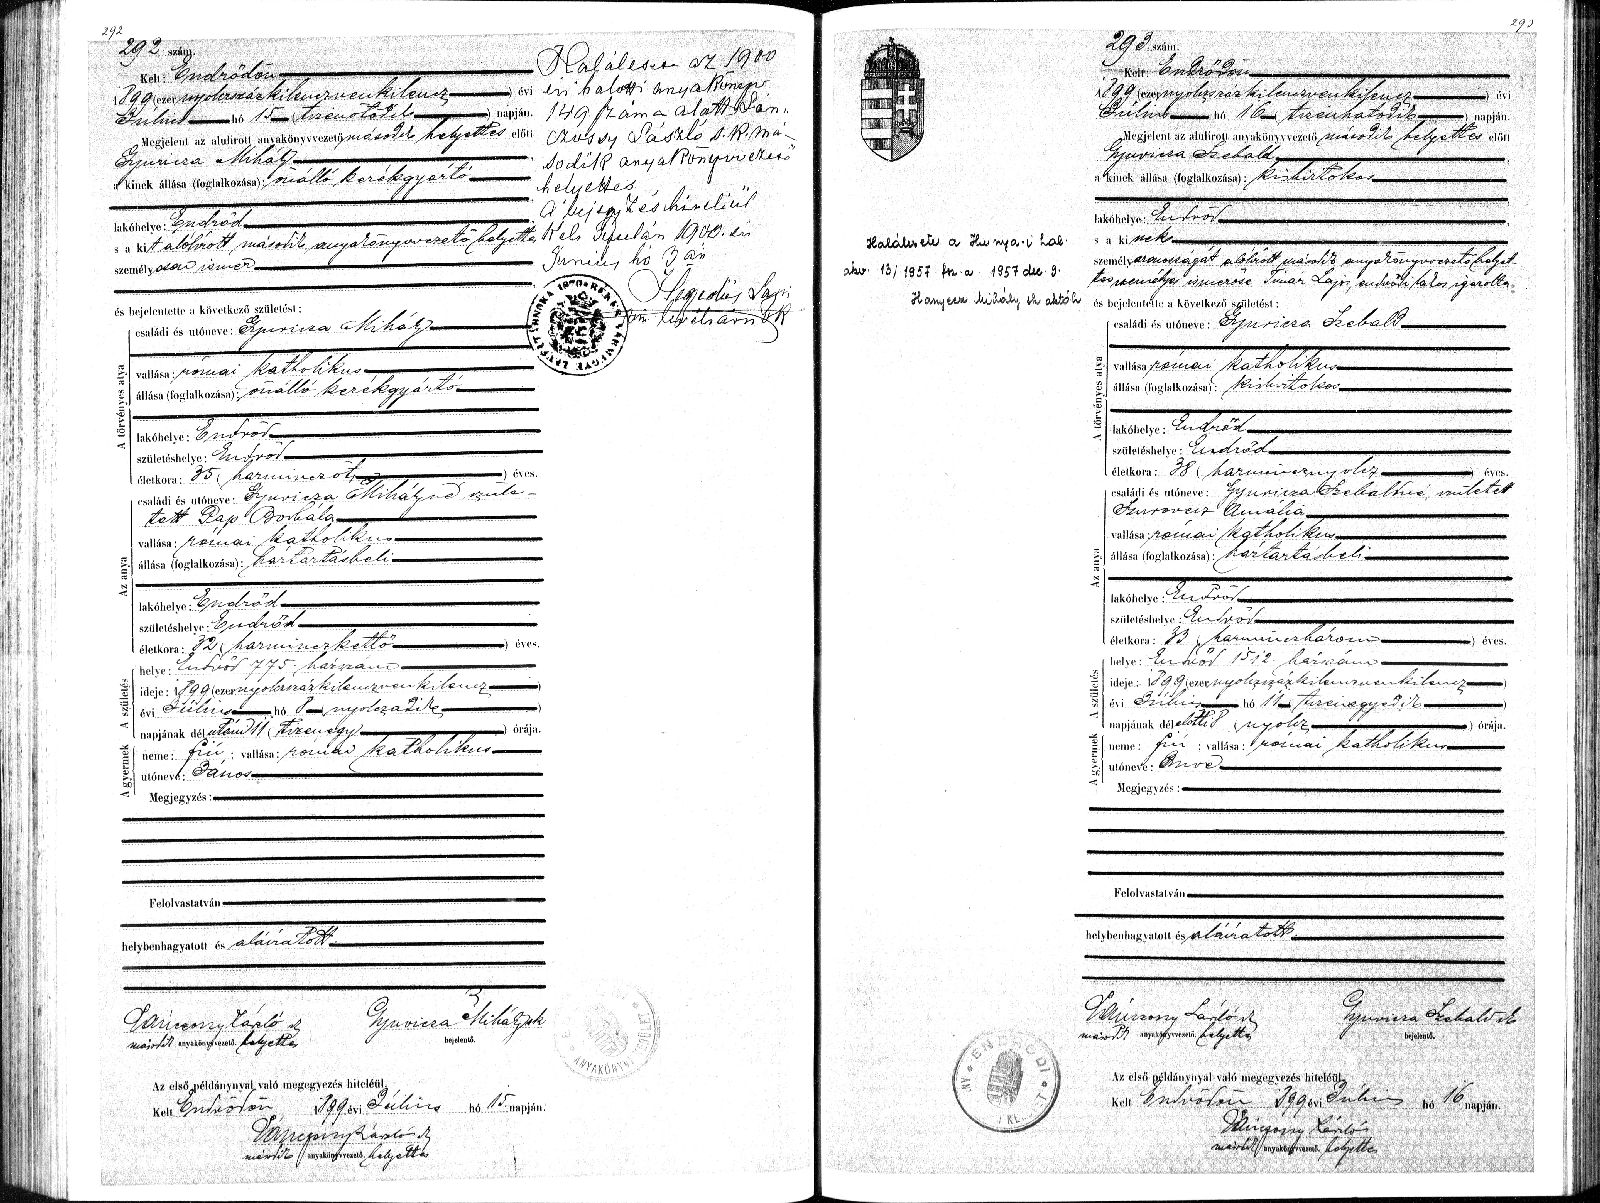 292
292 szám.
Kelt: Endrődön
1899 (ezernyolczszázkilenczvenkilencz) évi
Július hó 15 (tizenötödik) napján.
Megjelent az alulirott anyakönyvvezető második helyettes előtt
Gyuricza Mihály
a kinek állása (foglalkozása): önálló kerékgyártó
lakóhelye: Endrőd
s a kit alulírott, második anyakönyvvezető helyettes
személyesen ismer
és bejelentette a következő születést:
A törvényes atya
családi és utóneve: Gyuricza Mihály
vallása: római katholikus
állása (foglalkozása): önálló kerékgyártó
lakóhelye: Endrőd
születéshelye: Endrőd
életkora: 35 (harminczöt) éves.
Az anya
családi és utóneve: Gyuricza Mihályné szüle-
tett Pap Borbála
vallása: római katholikus
állása (foglalkozása): háztartásbeli
lakóhelye: Endrőd
születéshelye: Endrőd
életkora: 32 (harminczkettő) éves.
A születés
helye: Endrőd 775 házszám
ideje: 1899 (ezernyolczszázkilenczvenkilencz)
évi Július hó 8 nyolczadik
napjának délutáni 11 (tizenegy) órája.
A gyermek
neme: fiú; vallása: római katholikus
utóneve: János
Megjegyzés:
Felolvastatván
helybenhagyatott és aláíratott
Lánczossy László sk
második anyakönyvvezető. helyettes
Gyuricza Mihály sk
bejelentő.
Az első példánynyal való megegyezés hiteléül,
Kelt Endrődön, 1899 évi Július hó 15 napján.
Lánczossy László sk
második anyakönyvvezető. helyettes
Halálesete az 1900
évi halotti anyakönyv
149 száma alatt Lán-
czossy László s.k. má-
sodik anyakönyvvezető
helyettes
A bejegyzés hiteléül
Kelt Gyulán 1900. évi
Június hó 3 án
Hegedűs
293
293 szám.
Kelt: Endrődön
1899 (ezernyolczszázkilenczvenkilencz) évi
Július hó 16 (tizenhatodik) napján.
Megjelent az alulirott anyakönyvvezető második helyettes előtt
Gyuricza Szebald
a kinek állása (foglalkozása): kisbirtokos
lakóhelye: Endrőd
s a kinek
személyazonosságát alólírott második anyakönyvvezető helyet-
tes személyes ismerőse Timár Lajos endrődi lakos igazolta,
és bejelentette a következő születést:
A törvényes atya
családi és utóneve: Gyuricza Szebald
vallása: római katholikus
állása (foglalkozása): kisbirtokos
lakóhelye: Endrőd
születéshelye: Endrőd
életkora: 38 (harmincznyolcz) éves.
Az anya
családi és utóneve: Gyuricza Szebaldné, született
Amália
vallása: római katholikus
állása (foglalkozása): háztartásbeli
lakóhelye: Endrőd
születéshelye: Endrőd
életkora: 33 (harminczhárom) éves.
A születés
helye: Endrőd 1512 házszám
ideje: 1899 (ezernyolczszázkilenczvenkilencz)
évi Július hó 11 tizenegyedik
napjának délelőtti 8 (nyolcz) órája.
A gyermek
neme: fiú; vallása: római katholikus
utóneve: Imre
Megjegyzés:
Felolvastatván
helybenhagyatott és aláíratott
Lánczossy László sk
második anyakönyvvezető. helyettes
Gyuricza Szebald sk
bejelentő.
Az első példánynyal való megegyezés hiteléül,
Kelt Endrődön 1899 évi Július hó 16 napján.
Lánczossy László
második anyakönyvvezető. helyettes
Halálesete a Hunya-i hal.
akv. 13/1957 fsz. a. 1957 dec 9.
Hanyecz Mihály
ENDRŐDI